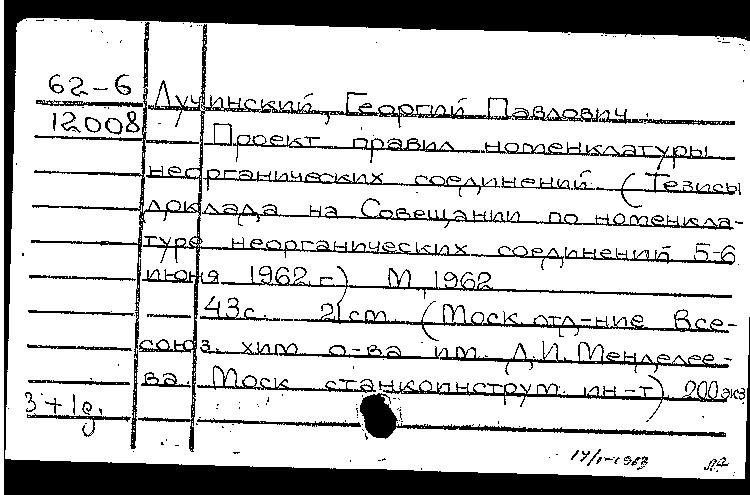 62-6
12008
Лучинский, Георгий Павлович.
Проект правил номенклатуры
неорганических соединений. (Тезисы
доклада на Совещании по номенкла-
туре неорганических соединений 5-6
июня 1962 г.) М. 1962
43 с. 21 см. (Моск. отд-ние Все-
союз. хим. о-ва им. Д.И. Менделее-
ва. Моск. станкоинструм. ин-т) 200 экз
3+1д.